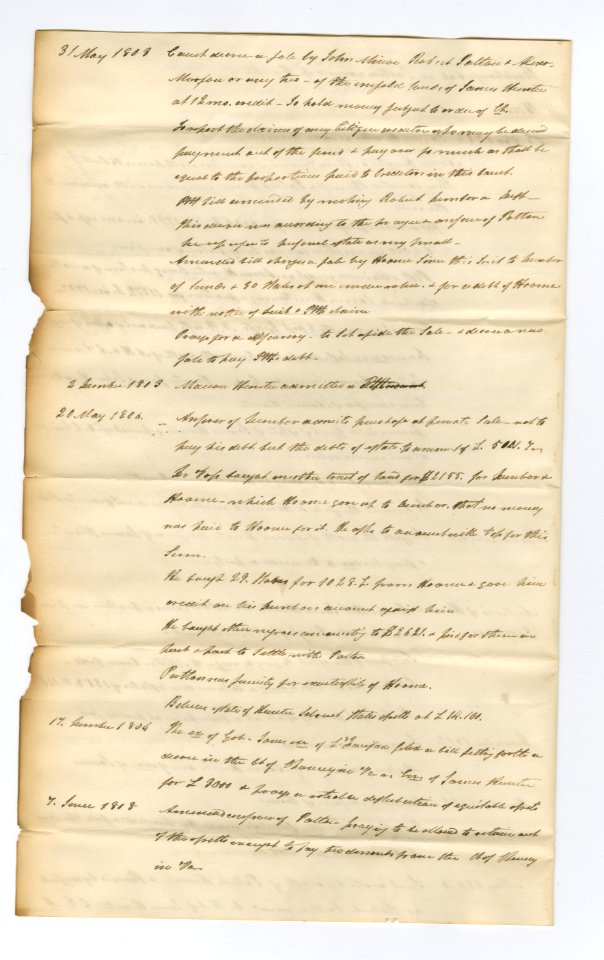 31 May 1803 Court decree a sale by John Minor Robert Patton & Alexr.
Morson or any two - of the unsold lands of James Hunter
at 12 mo. credit - To hold money subject to order of Ct.
To report the claims of any British creditor who may be decreed
payment out of the fund & pay over so much as shall be
equal to the proportions paid to Creditors in this Court
Bill amended by making Robert Dunbar a Deft -
This decree was according to the prayer & answer of Patton
he reports personal estate as very small -
Amended bill charges a sale by Hoome since this Suit to Dunbar
of lands & 30 Slaves at an under value, & for a debt of Hoome
with notice of suit & claim
Prays for a discovery - to set aside the Sale - & decree a new
sale to pay debt -
2 1803 Hunter admitted a
20 May 1806. - Answer of Dunbar admits purchase at private Sale - not to
pay his debt but the debts of estate to amount of £.
bought another tract of land for £2155. for Dunbar &
Hoome - which Hoome gave up to Dunbar, that no money
was paid to Hoome for it. He offers to account with for this
Sum.
He bought 29. for 1028.£ from Hoome & gave him
credit on his Dunbars account against him
He bought other negroes amounting to £2621. & paid for them in
part & part to Settle with Patton
Patton was security for executorship of Hoome.
Believes estate of Hunter Solvent states assets at £14.100.
17. 1804 The ex of Gov. Jones ex of Ld Fairfax filed a bill setting forth a
decree in the Ct of Chancery in Va vs. of James Hunter
for £3000 & prays a distribution of equitable assets
7. June 1808 Amended answer of Patton praying to be allowed to retain out
of the assets enough to pay two demands from the Ct of Chancery
in Va.